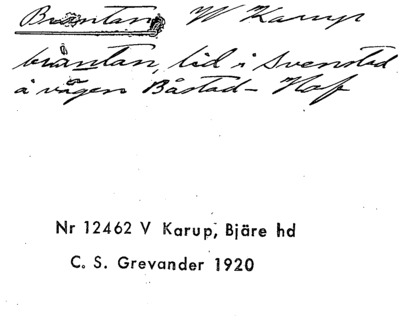 Bräntan W Karup
bräntan, lid i Svenstad
å vägen Båstad - Hof
Nr 12462 V Karup, Bjäre hd
C. S. Grevander 1920